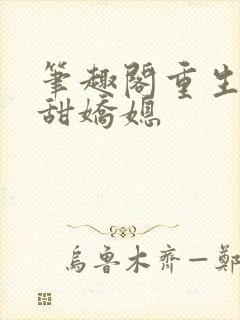 筆趣閣重生
甜嬌媳
烏魯木齊—鄭